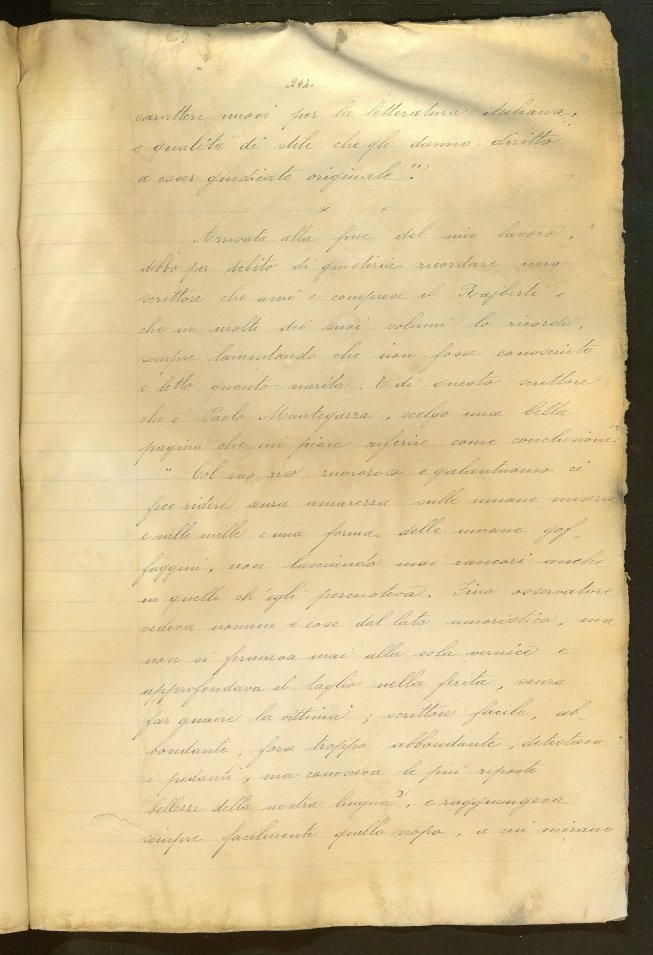 -264-
caratteri nuovi per la letteratura italiana,
e qualità di stile che gli danno diritto
a esser giudicato originale.
Arrivata alla fine del mio lavoro,
debbo per debito di giustizia ricordare uno
scrittore che amò e comprese il Rajberti e
che in molti dei suoi volumi lo ricordò,
sempre lamentando che non fosse conosciuto
e letto quanto merita. E di questo scrittore
che è Paolo Mantegazza, scelgo una bella
pagina che mi piace riferire come conclusione:
" Col suo riso rumoroso e galantuomo ci
fece ridere senza amarezza sulle umane miserie
e sulle mille e una forma delle umane gof-
faggini, non lasciando mai rancori anche
in quelli ch'egli percuoteva. Fino osservatore
vedeva uomini e cose dal lato umoristico, ma
non si fermava mai alla sola vernice e
approfondava il taglio nella ferita, senza
far guaire la vittima; scrittore facile, ab-
bondante, forse troppo abbondante, detestava
i pedanti, ma conosceva le più riposte
bellezze della nostra lingua, e raggiungeva
sempre facilmente quello scopo, a cui mirano